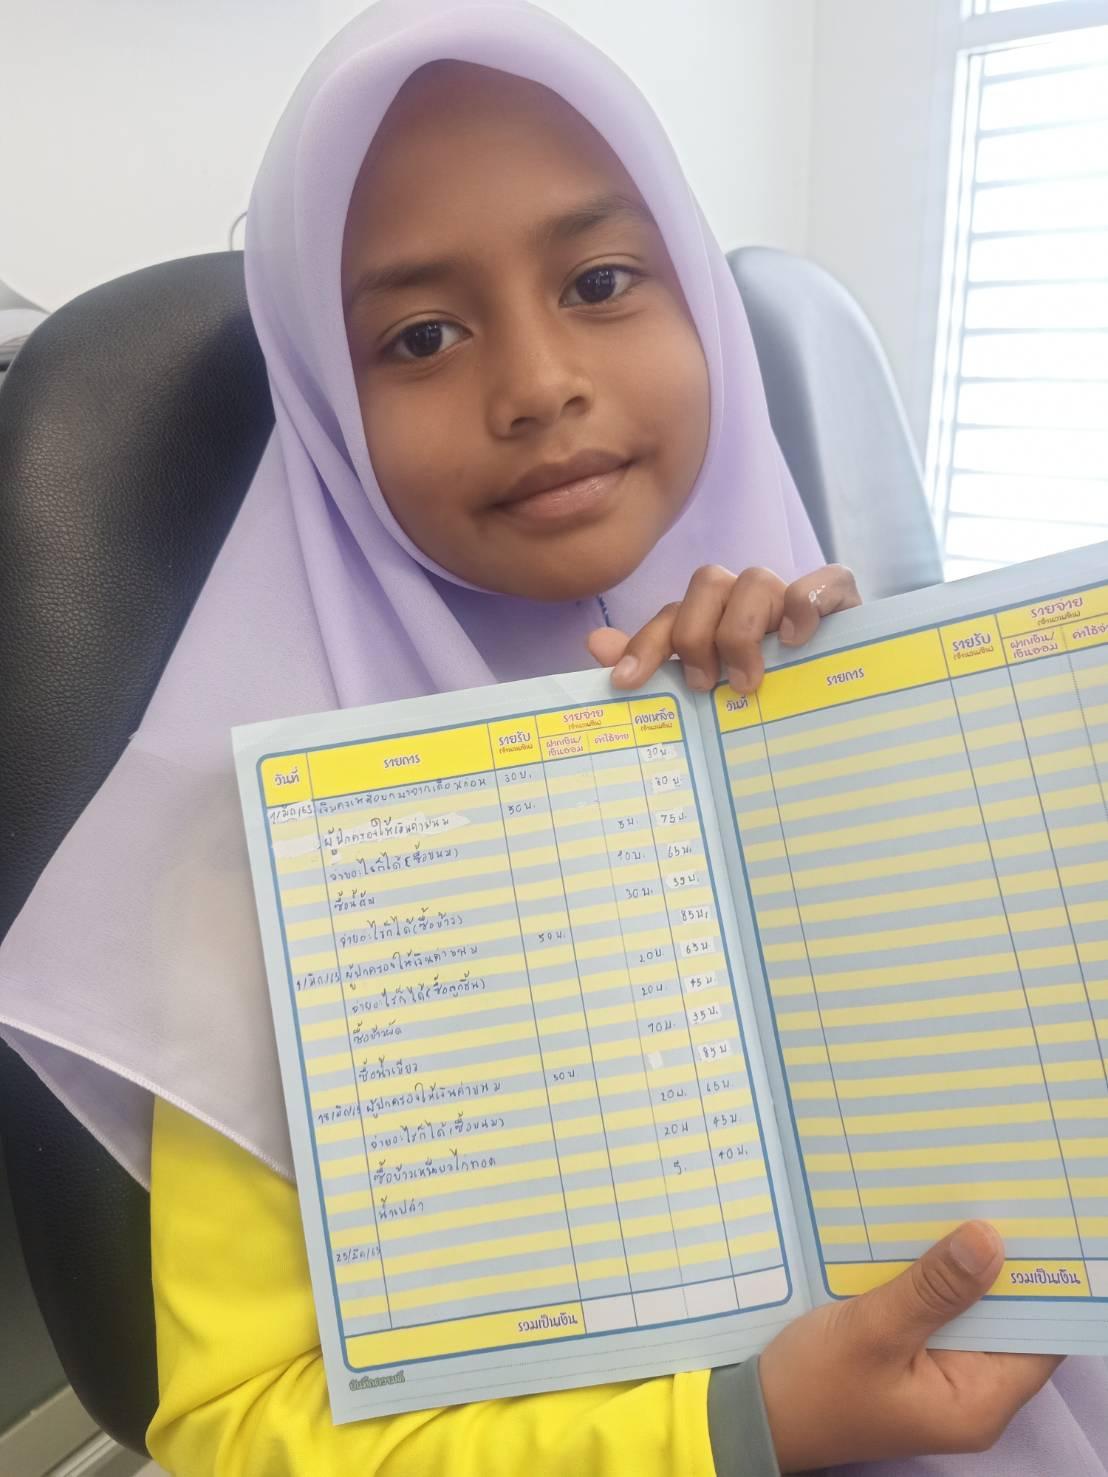 วันที่ รายการ รายรับ (จำนวนเงิน) รายจ่าย (จำนวนเงิน) ฝากเงิน/เงินออม ค่าใช้จ่าย คงเหลือ (จำนวนเงิน)
เงินคงเหลือยกมาจากเดือนก่อน 30 บ. 30 บ.
ผู้ปกครองให้เงินค่าขนม 50 บ. 80 บ.
จ่ายอะไรก็ได้ (ซื้อขนม) 5 บ. 75 บ.
ซื้อน้ำส้ม 10 บ. 65 บ.
จ่ายอะไรก็ได้ (ซื้อข้าว) 30 บ. 35 บ.
ผู้ปกครองให้เงินค่าขนม 50 บ. 85 บ.
จ่ายอะไรก็ได้ (ซื้อลูกชิ้น) 20 บ. 65 บ
20 บ. 45 บ
ซื้อน้ำเขียว 10 บ. 35 บ.
ผู้ปกครองให้เงินค่าขนม 50 บ 85 บ
จ่ายอะไรก็ได้ (ซื้อขนม) 20 บ. 65 บ.
ซื้อข้าวเหนียวไก่ทอด 20 บ 45 บ.
น้ำเปล่า 5. 40 บ.
รวมเป็นเงิน
บันทึกความดี
วันที่ รายการ รายรับ (จำนวนเงิน) รายจ่าย (จำนวนเงิน) ฝากเงิน/เงินออม
รวมเป็นเงิน